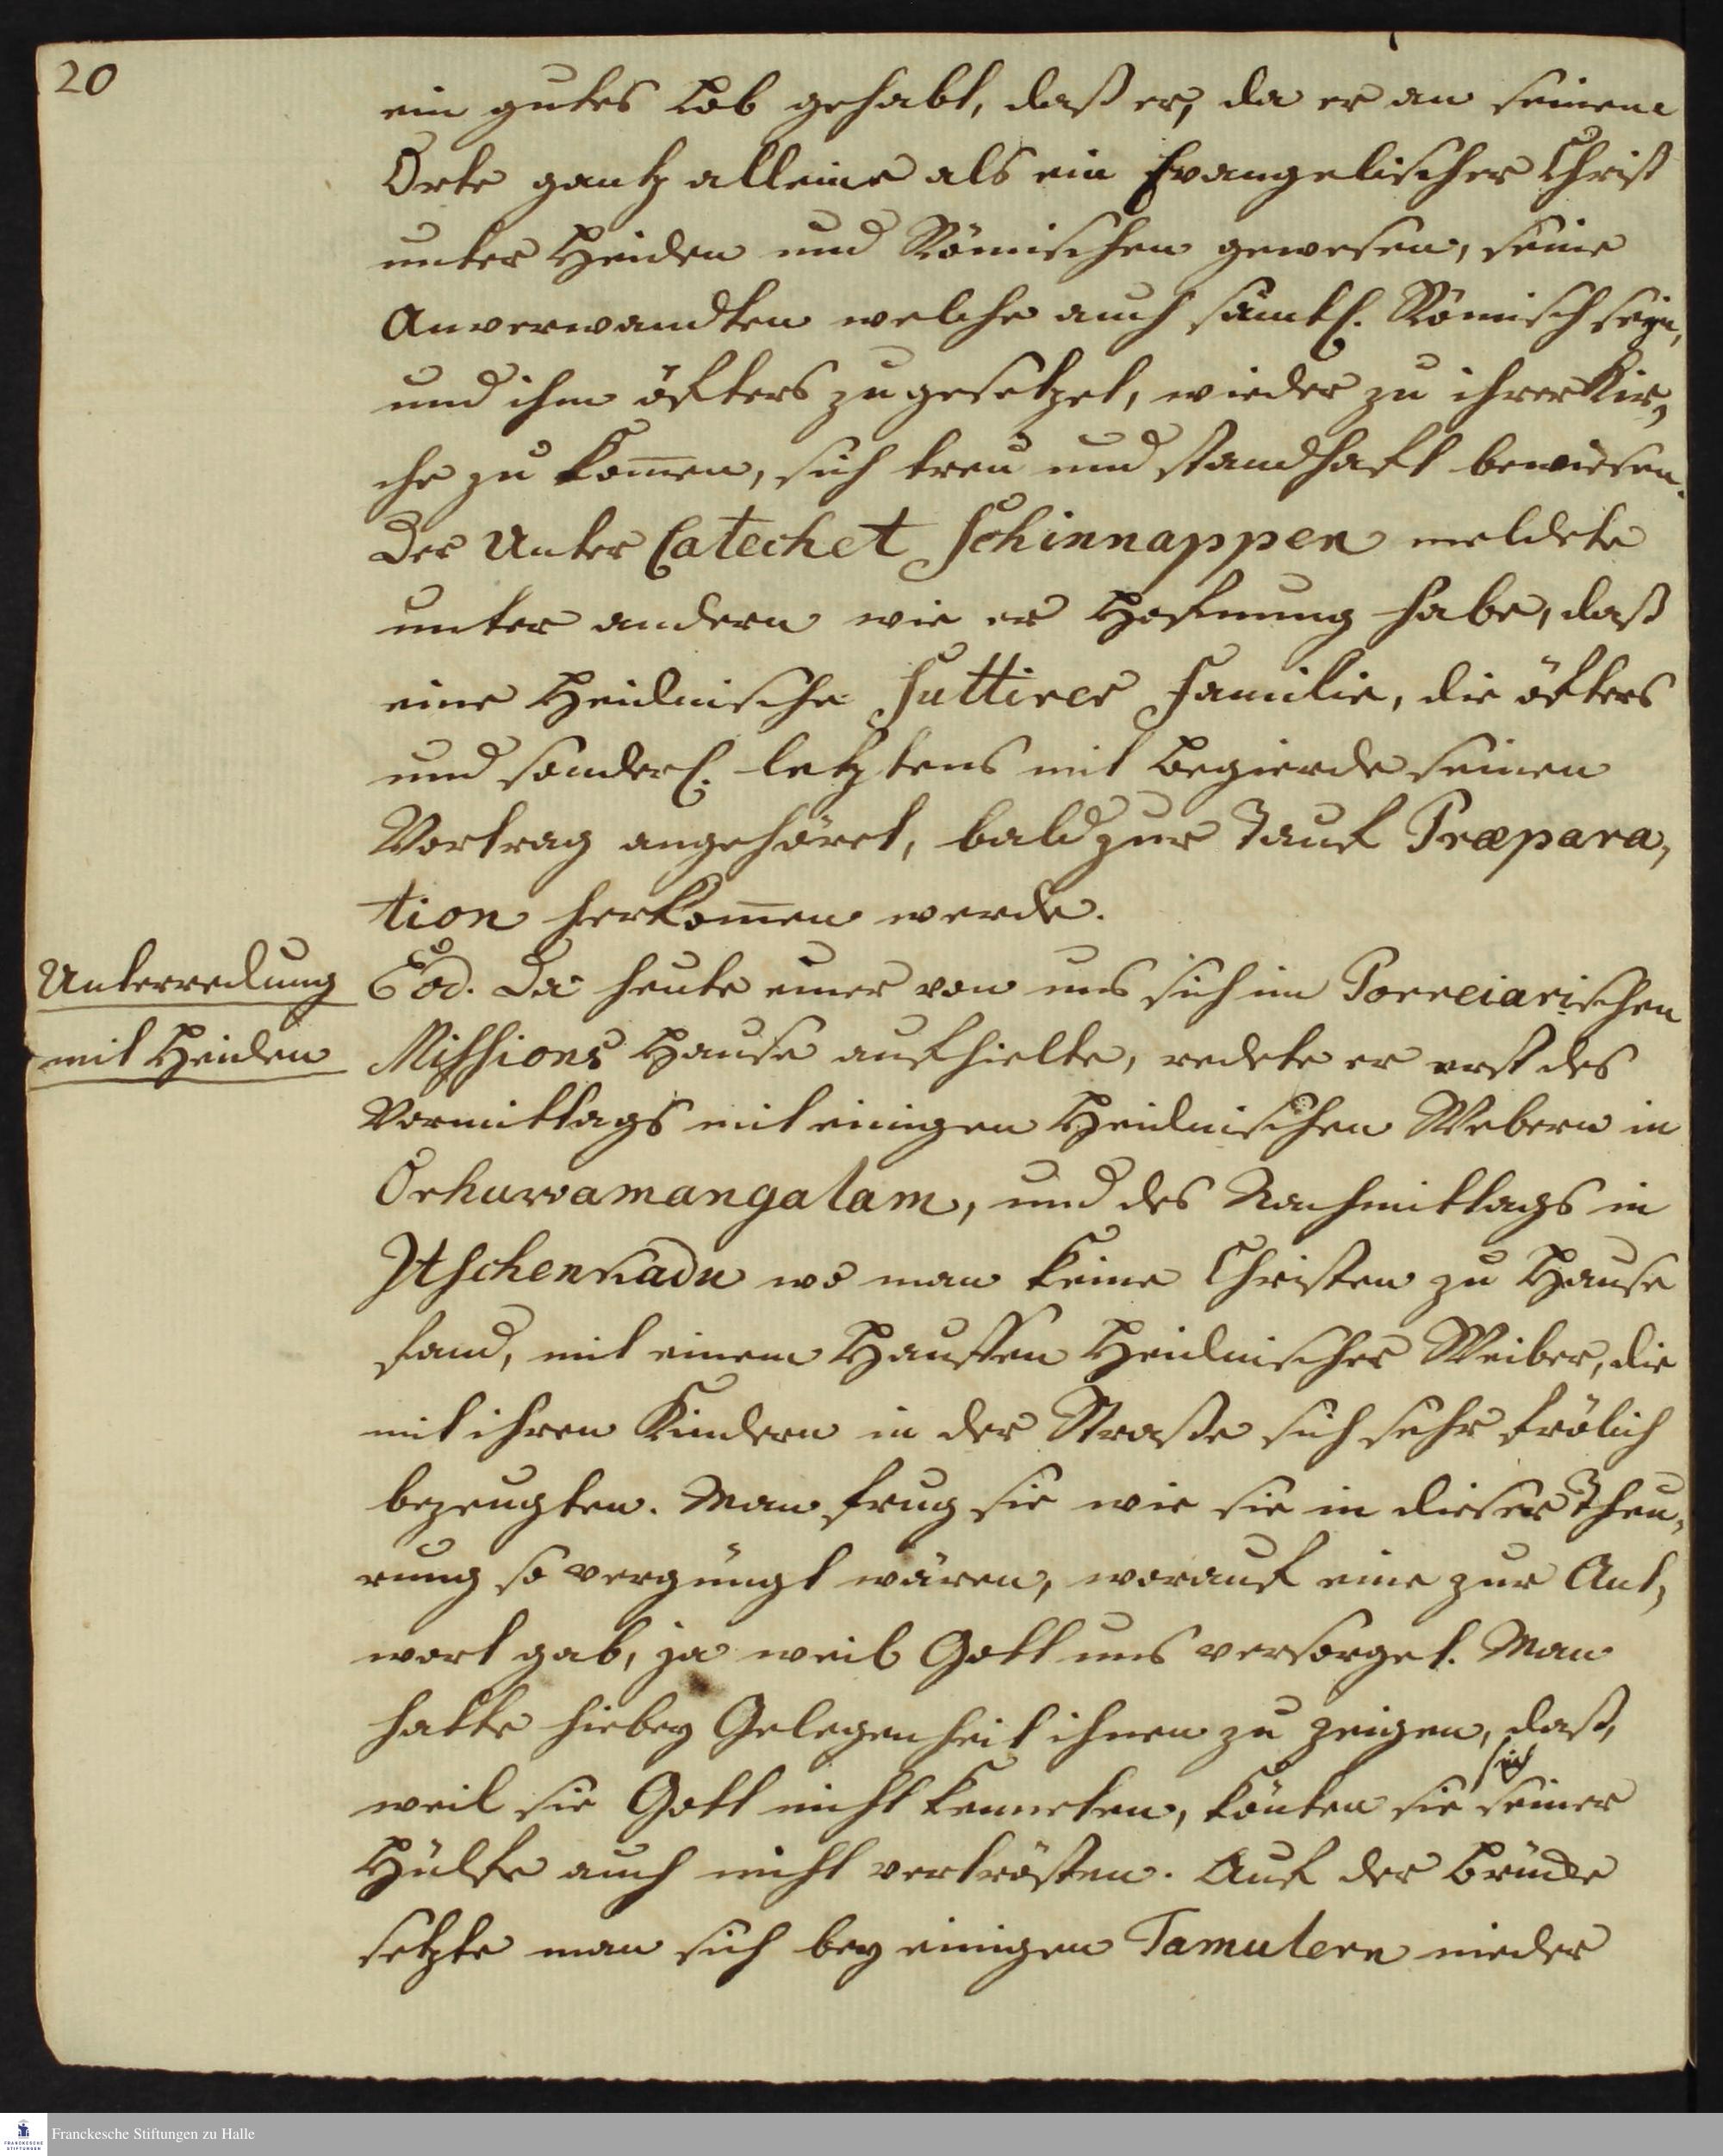 20
ein gutes Lob gehabt, daß er, da er an seinem
Orte gantz alleine als ein Evangelischer Christ
unter Heiden und Römischen gewesen, seine
Anverwandten welche auch sämtl. Römisch seyn,
und ihm öfters zugesetzet, wieder zu ihrer Kir,
che zu kom̅en, sich treu und standhaft bewiesen.
Der Unter Catechet Schinnappen meldete
unter andern wie er Hofnung habe, daß
eine Heidnische Suttirer Familie, die öfters
und sonderl. letztens mit Begierde seinen
Vortrag angehöret, bald zur Tauf Præpara,
tion herkom̅en werde.
Unterredung
mit Heiden
Eod. Da heute einer von uns sich im Porreiarischen
Missions Hause aufhielte, redete er erst des
Vormittags mit einigen Heidnischen Webern in
Orhuwamangalam, und des Nachmittags in
Itschenkadu wo man keine Christen zu Hause
fand, mit einem Hauffen Heidnischer Weiber, die
mit ihren Kindern in der Straße sich sehr frölich
bezeugten. Man frug sie wie sie in dieser Theu,
rung so vergnügt wären, worauf eine zur Ant,
wort gab, ja weil Gott uns versorget. Man
hatte hiebey Gelegenheit ihnen zu zeigen, daß,
weil sie Gott nicht kenneten, könten sie sich seiner
Hülfe auch nicht vertrösten. Auf der Brücke
setzte man sich bey einigen Tamulern nieder
Franckesche Stiftungen zu Halle
FRANCKESCHE STIFTUNGEN